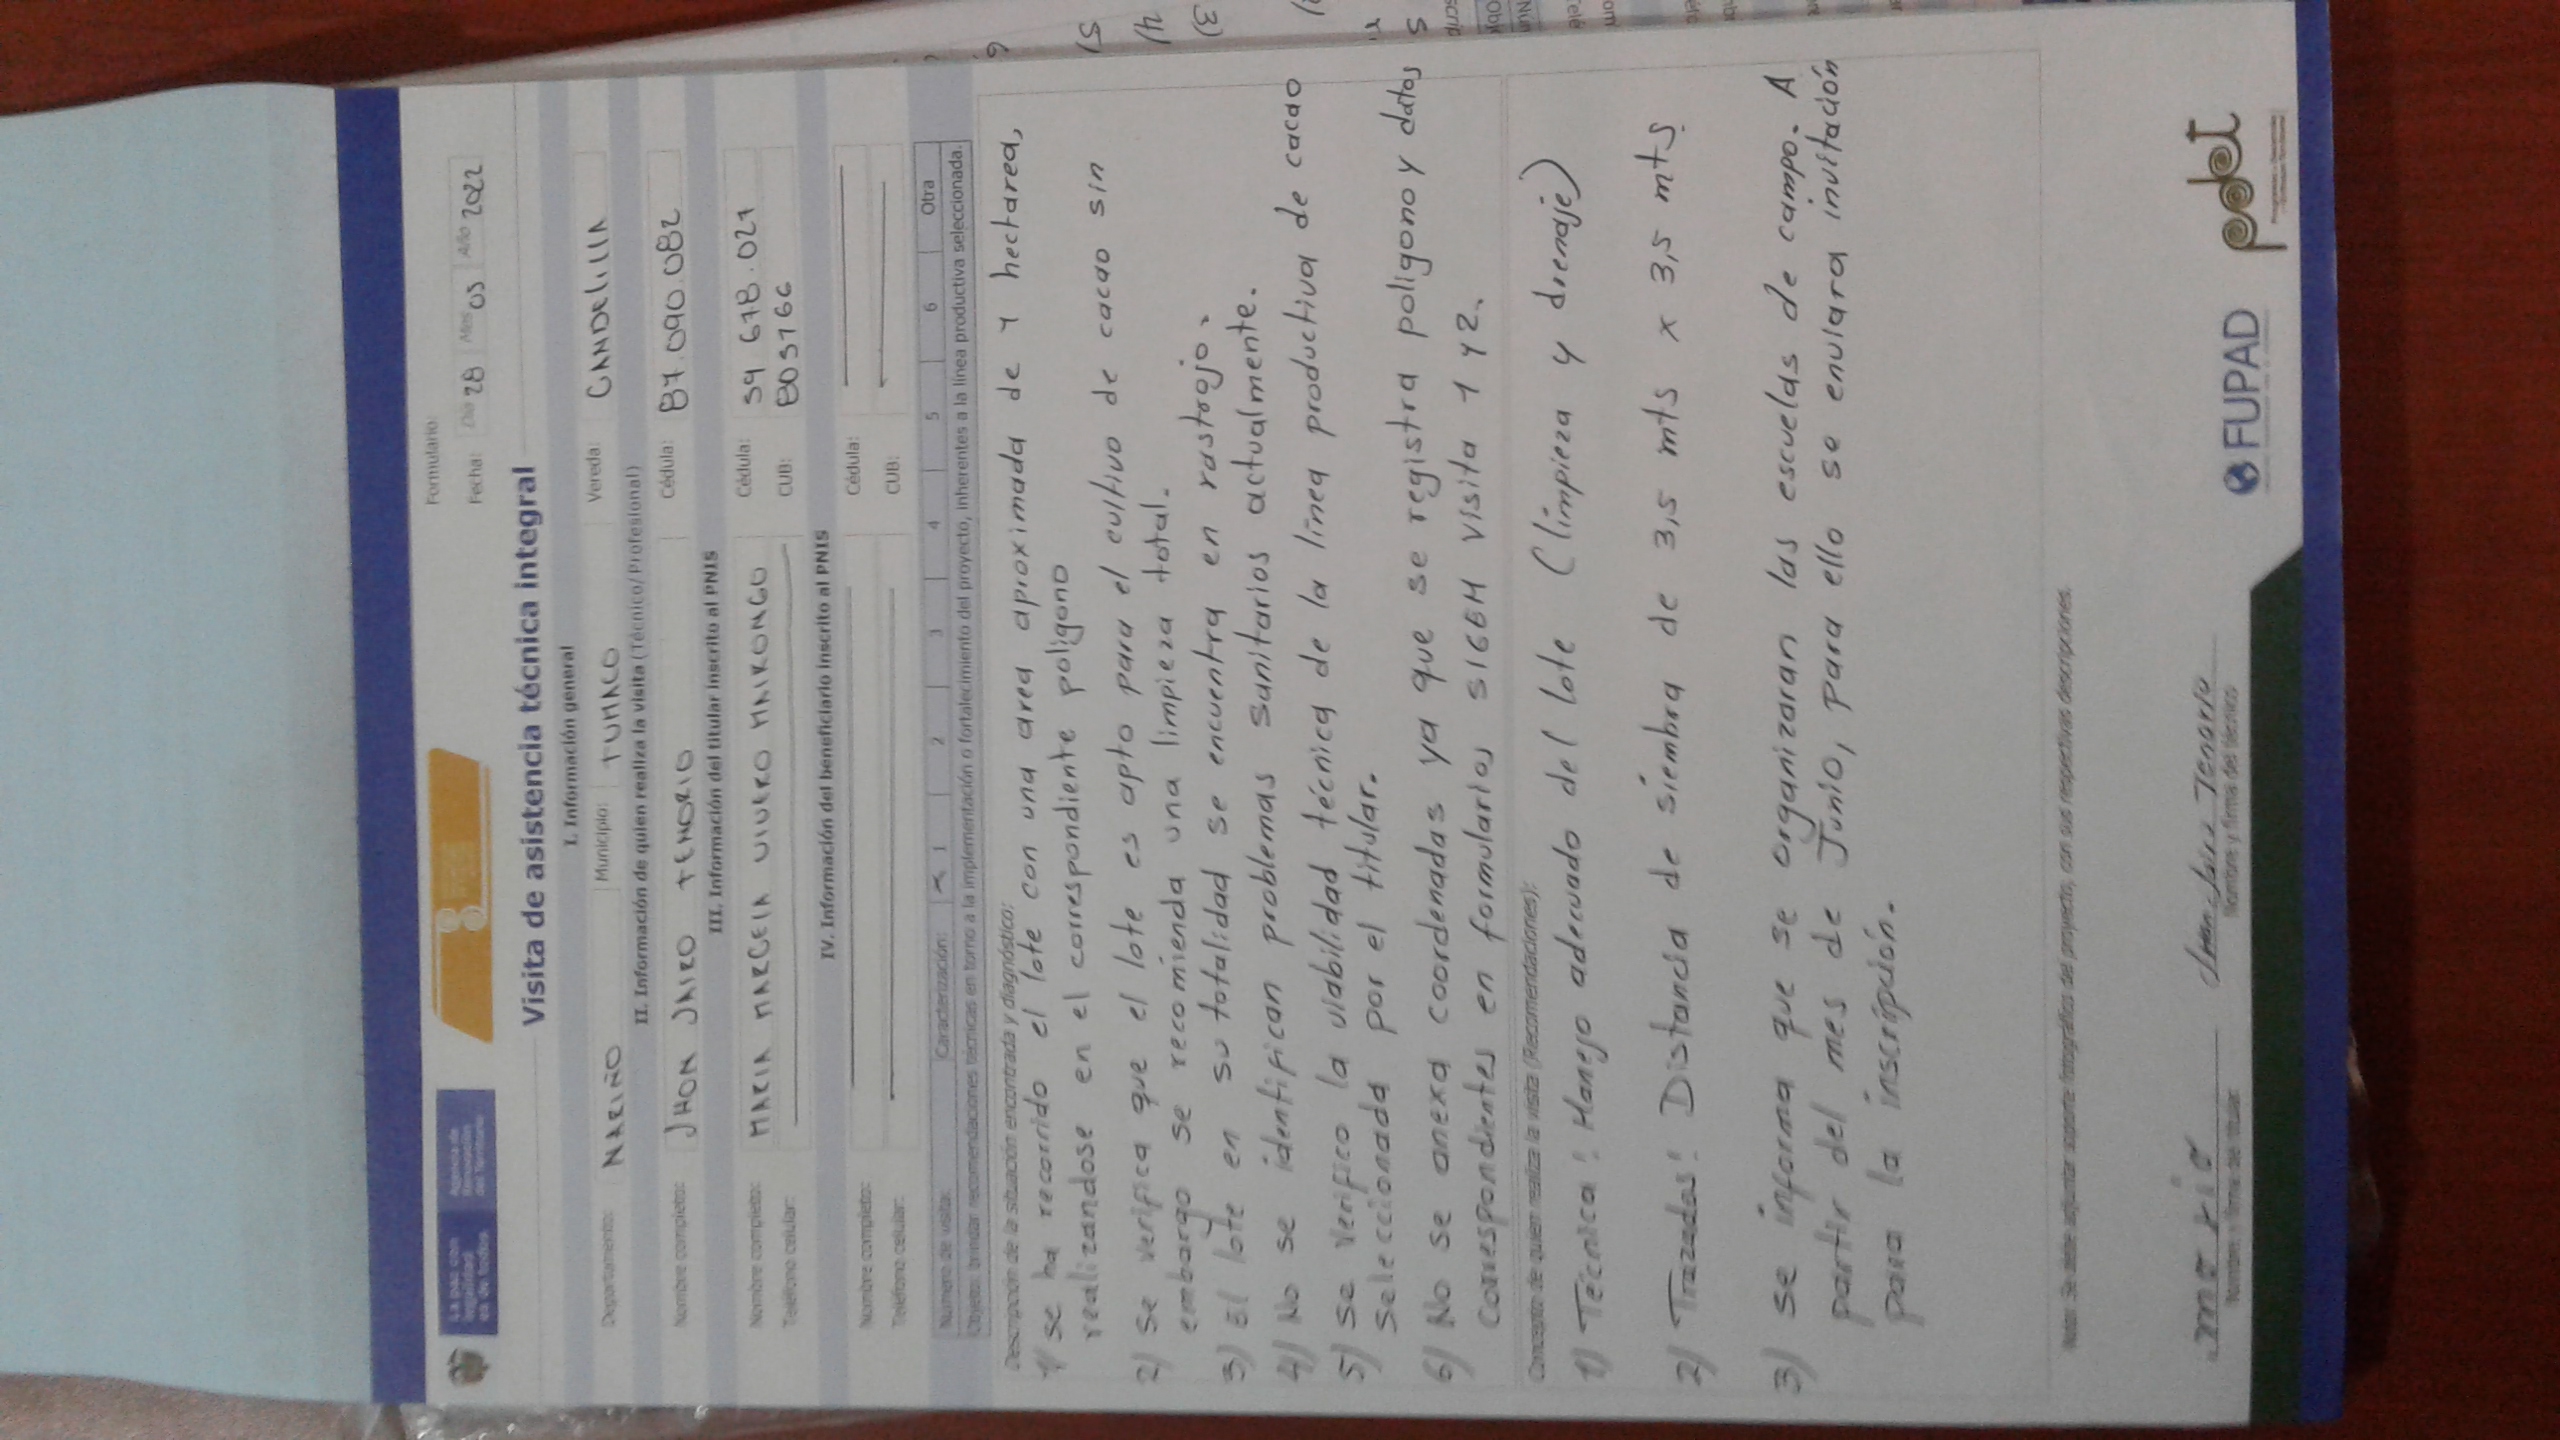 La paz con legalidad es de todos.
Agencia de Renovación del Territorio
Formulario:
Fecha: Día 28 Mes 05 Año 2022
Visita de asistencia técnica integral
I. Información general
Departamento: NARIÑO Municipio: TUMACO Vereda: CANDELILLA
II. Información de quien realiza la visita (Técnico/Profesional)
Nombre completo: JHON JAIRO TENORIO Cédula: 87.090.082
III. Información del titular inscrito al PNIS
Nombre completo: MARIA MARCELA VIVERO MAIRONGO Cédula: 59 678.021
Teléfono celular: CUB: 803766
IV. Información del beneficiario inscrito al PNIS
Nombre completo: Cédula:
Teléfono celular: CUB:
Número de visita: Caracterización: X 1 2 3 4 5 6 Otra
Objeto: brindar recomendaciones técnicas en torno a la implementación o fortalecimiento del proyecto, inherentes a la línea productiva seleccionada.
Descripción de la situación encontrada y diagnóstico:
1) se ha recorrido el lote con una area aproximada de 1 hectarea,
realizandose en el correspondiente poligono
2) Se verifica que el lote es apto para el cultivo de cacao sin
embargo se recomienda una limpieza total.
3) El lote en su totalidad se encuentra en rastrojo.
4) No se identifican problemas sanitarios actualmente.
5) se verifico la viabilidad técnica de la línea productiva de cacao
seleccionada por el titular.
6) No se anexa coordenadas ya que se registra poligono y datos
Correspondientes en formularios SIGBM visita 1 y 2.
Concepto de quien realiza la visita (Recomendaciones):
1) Técnica: Manejo adecuado del lote (limpieza y drenaje)
2) Trazados: Distancia de siembra de 3,5 mts x 3,5 mts.
3) se informa que se organizaran las escuelas de campo. A
partir del mes de Junio, para ello se enviara invitación
para la inscripción.
Nota: Se debe adjuntar soporte fotográfico del proyecto, con sus respectivas descripciones.
Nombre y firma del titular Nombre y firma del técnico
FUPAD
pdet